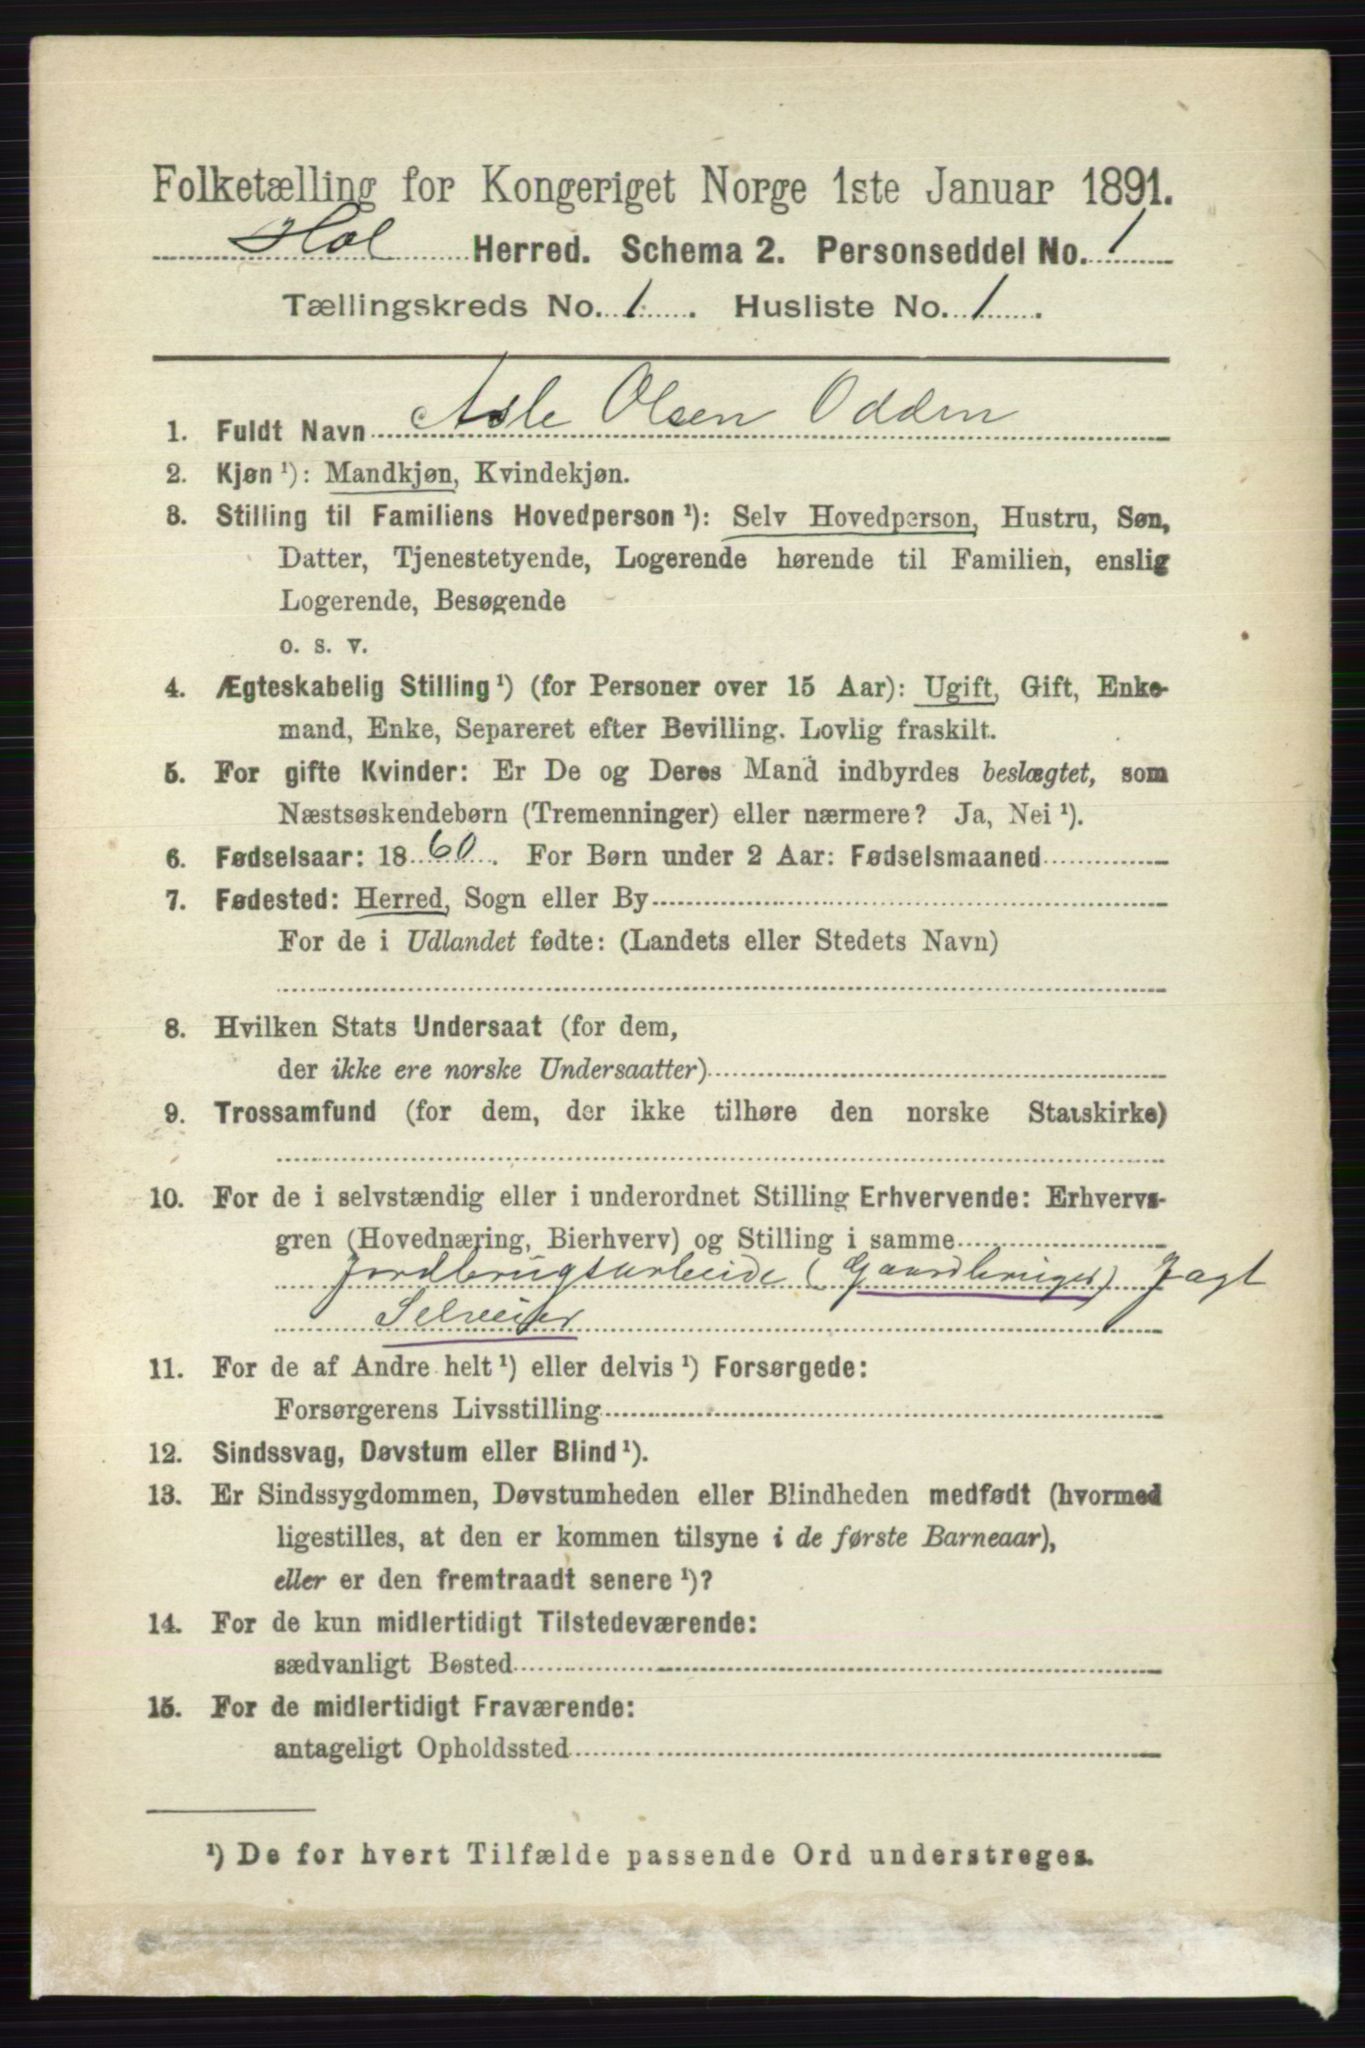 Folketælling for Kongeriget Norge 1ste Januar 1891.
Hol Herred. Schema 2. Personseddel No. 1
Tællingskreds No. 1. Husliste No. 1.
1. Fuldt Navn Asle Olsen Odden
2. Kjøn ¹): Mandkjøn, Kvindekjøn.
3. Stilling til Familiens Hovedperson ¹): Selv Hovedperson, Hustru, Søn,
Datter, Tjenestetyende, Logerende hørende til Familien, enslig
Logerende, Besøgende
o. s. v.
4. Ægteskabelig Stilling ¹) (for Personer over 15 Aar): Ugift, Gift, Enke-
mand, Enke, Separeret efter Bevilling. Lovlig fraskilt.
5. For gifte Kvinder: Er De og Deres Mand indbyrdes beslægtet, som
Næstsøskendebørn (Tremenninger) eller nærmere? Ja, Nei ¹).
6. Fødselsaar: 1860. For Børn under 2 Aar: Fødselsmaaned
7. Fødested: Herred, Sogn eller By
For de i Udlandet fødte: (Landets eller Stedets Navn)
8. Hvilken Stats Undersaat (for dem,
der ikke ere norske Undersaatter)
9. Trossamfund (for dem, der ikke tilhøre den norske Statskirke)
10. For de i selvstændig eller i underordnet Stilling Erhvervende: Erhvervs-
gren (Hovednæring, Bierhverv) og Stilling i samme
Jordbrugsarbeide (Gaardbruger) Jagt
Selveier
11. For de af Andre helt ¹) eller delvis ¹) Forsørgede:
Forsørgerens Livsstilling
12. Sindssvag, Døvstum eller Blind ¹).
13. Er Sindssygdommen, Døvstumheden eller Blindheden medfødt (hvormed
ligestilles, at den er kommen tilsyne i de første Barneaar),
eller er den fremtraadt senere ¹)?
14. For de kun midlertidigt Tilstedeværende:
sædvanligt Bosted
15. For de midlertidigt Fraværende:
antageligt Opholdssted
¹) De for hvert Tilfælde passende Ord understreges.